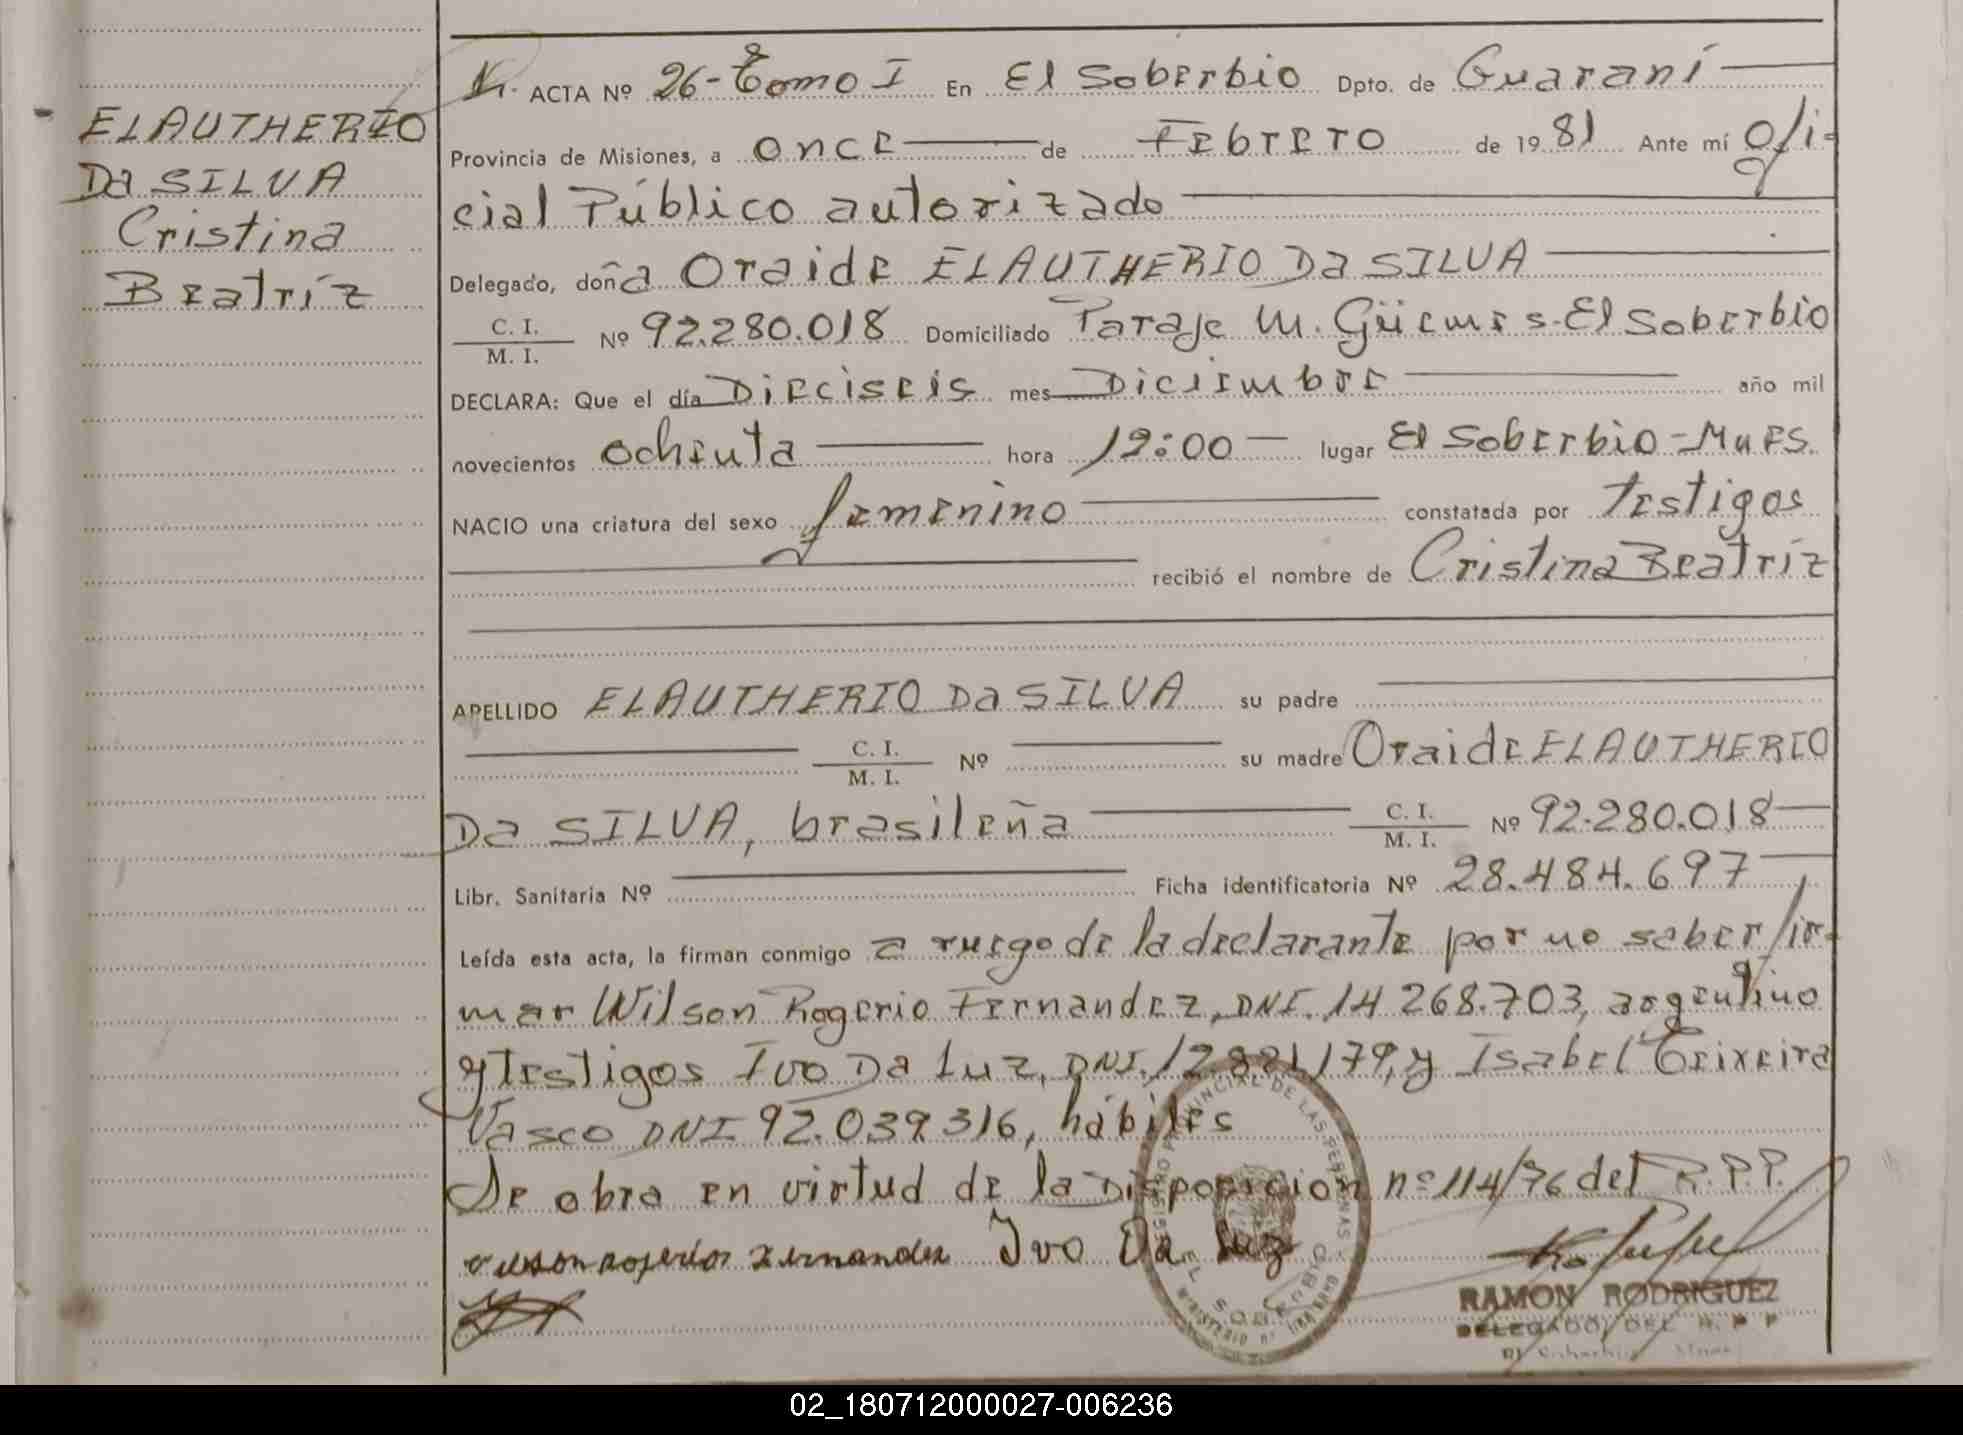 ELAUTHERIO
Da SILVA
Cristina
Beatríz
N. ACTA Nº 26-Tomo I En El Soberbio Dpto. de Guaraní
Provincia de Misiones, a once de Febrero de 1981 Ante mí ofi-
cial Público autorizado
Delegado, doña Oraide ELAUTHERIO Da SILVA
C. I.
M. I. Nº 92.280.018 Domiciliado Paraje M. Güemes-El Soberbio
DECLARA: Que el día Dieciseis mes Diciembre año mil
novecientos ochenta hora 19:00 lugar El Soberbio-Mnes.
NACIO una criatura del sexo femenino constatada por testigos
recibió el nombre de Cristina Beatríz
APELLIDO ELAUTHERIO Da SILVA su padre
C. I.
M. I. Nº su madre Oraide ELAUTHERIO
Da SILVA, brasileña C. I.
M. I. Nº 92.280.018
Libr. Sanitaria Nº Ficha identificatoria Nº 28.484.697
Leída esta acta, la firman conmigo a ruego de la declarante por no saber fir-
mar Wilson Rogerio Fernandez, DNI. 14 268.703, argentino
y testigos Ivo Da Luz, DNI. 12.881179, y Isabel Teixeira
Vasco DNI 92.039.316, hábiles
Se obra en virtud de la Disposicion nº 114/76 del R.P.P.
Ivo Da Luz
REGISTRO PROVINCIAL DE LAS PERSONAS
EL SOBERBIO
MINISTERIO DE GOBIERNO
RAMON RODRIGUEZ
DELEGADO DEL R. P. P.
02_180712000027-006236